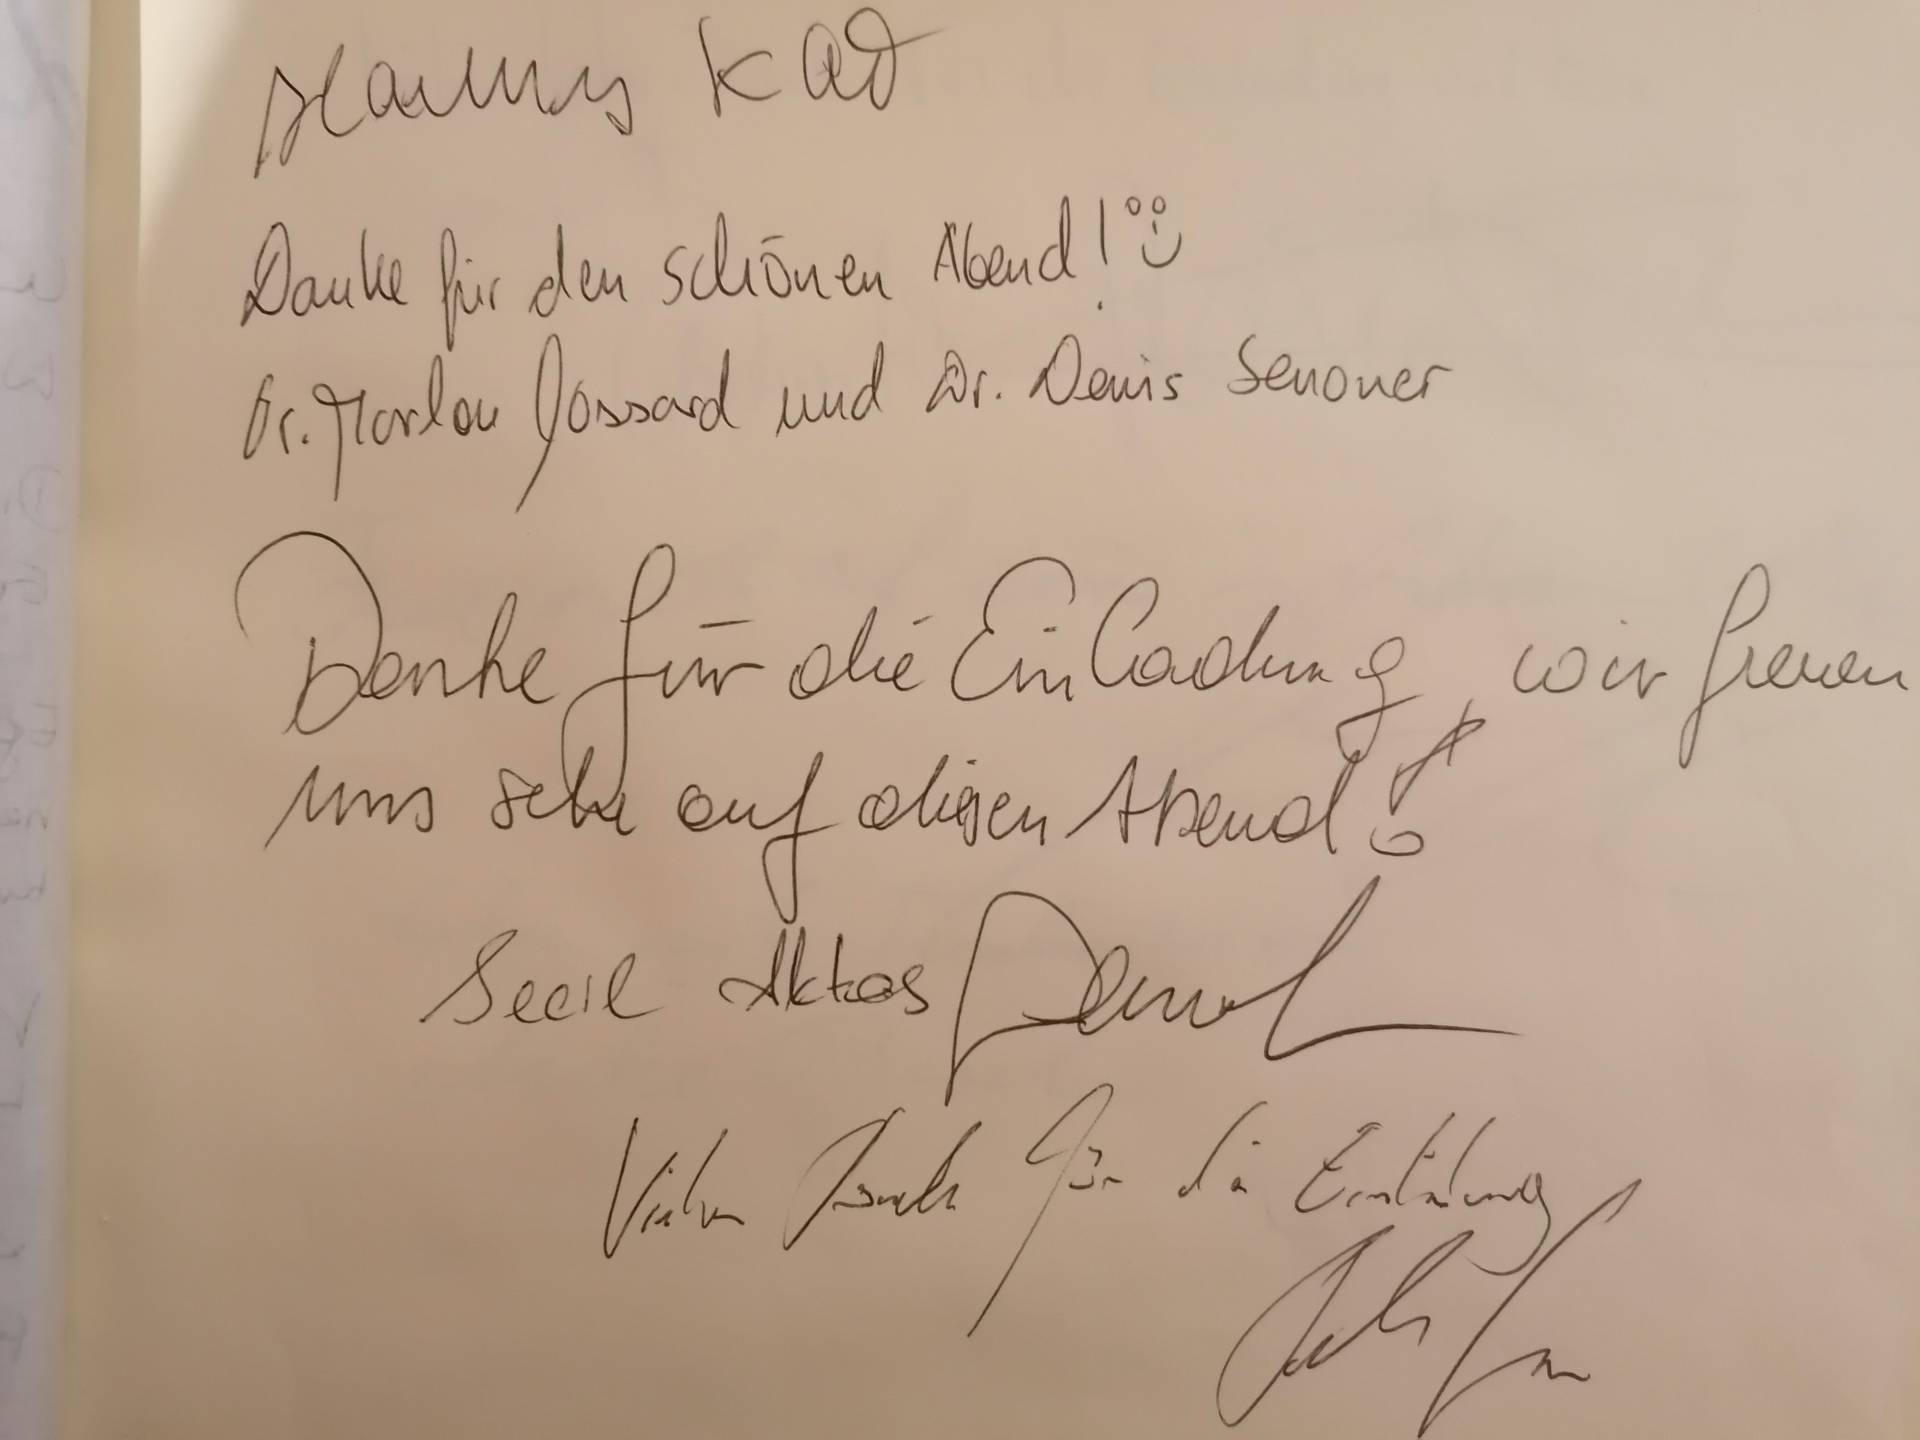 Hannes Kad
Danke für den schönen Abend!
Dr. Marlon Possard und Dr. Denis Senoner
Danke für die Einladung, wir freuen
uns sehr auf diesen Abend!
Secil Aktas
Vielen Dank für die Einladung